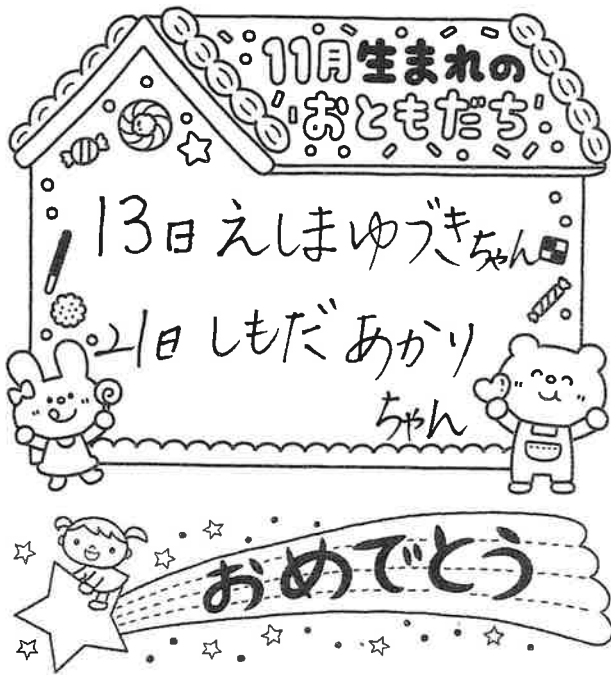 11月生まれの
おともだち
13日えしまゆづきちゃん
21日しもだあかり
ちゃん
おめでとう